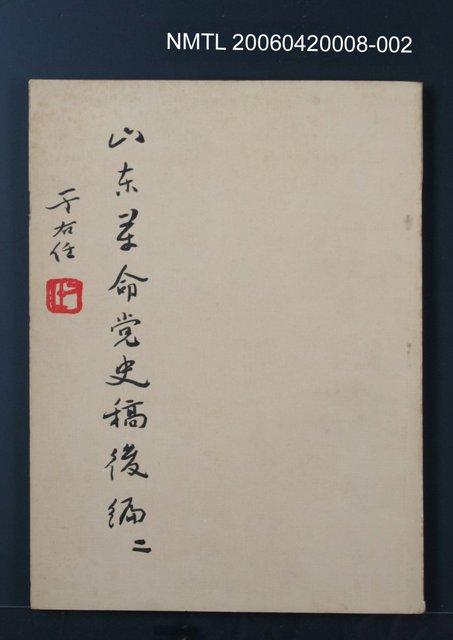 NMTL 20060420008-002
山东革命党史稿後编二
于右任